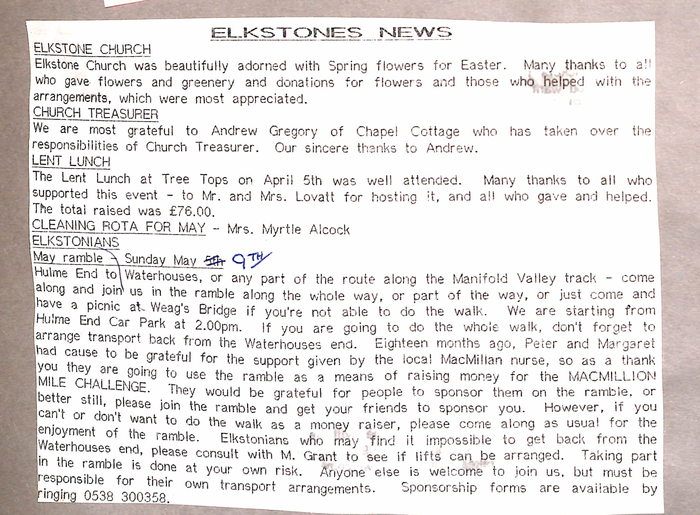 ELKSTONES NEWS
ELKSTONE CHURCH
Elkstone Church was beautifully adorned with Spring flowers for Easter. Many thanks to all
who gave flowers and greenery and donations for flowers and those who helped with the
arrangements, which were most appreciated.
CHURCH TREASURER
We are most grateful to Andrew Gregory of Chapel Cottage who has taken over the
responsibilities of Church Treasurer. Our sincere thanks to Andrew.
LENT LUNCH
The Lent Lunch at Tree Tops on April 5th was well attended. Many thanks to all who
supported this event - to Mr. and Mrs. Lovatt for hosting it, and all who gave and helped.
The total raised was £76.00.
CLEANING ROTA FOR MAY - Mrs. Myrtle Alcock
ELKSTONIANS
May ramble - Sunday May 5th 9TH
Hulme End to Waterhouses, or any part of the route along the Manifold Valley track - come
along and join us in the ramble along the whole way, or part of the way, or just come and
have a picnic at Weag's Bridge if you're not able to do the walk. We are starting from
Hulme End Car Park at 2.00pm. If you are going to do the whole walk, don't forget to
arrange transport back from the Waterhouses end. Eighteen months ago, Peter and Margaret
had cause to be grateful for the support given by the local MacMillan nurse, so as a thank
you they are going to use the ramble as a means of raising money for the MACMILLION
MILE CHALLENGE. They would be grateful for people to sponsor them on the ramble, or
better still, please join the ramble and get your friends to sponsor you. However, if you
can't or don't want to do the walk as a money raiser, please come along as usual for the
enjoyment of the ramble. Elkstonians who may find it impossible to get back from the
Waterhouses end, please consult with M. Grant to see if lifts can be arranged. Taking part
in the ramble is done at your own risk. Anyone else is welcome to join us, but must be
responsible for their own transport arrangements. Sponsorship forms are available by
ringing 0538 300358.